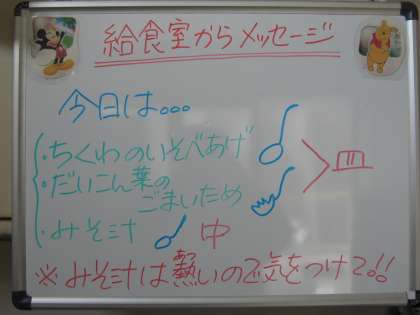 給食室からメッセージ
今日は。。。
・ちくわのいそべあげ
・だいこん葉の
ごまいため
皿
・みそ汁 中
※みそ汁は熱いので気をつけて!!